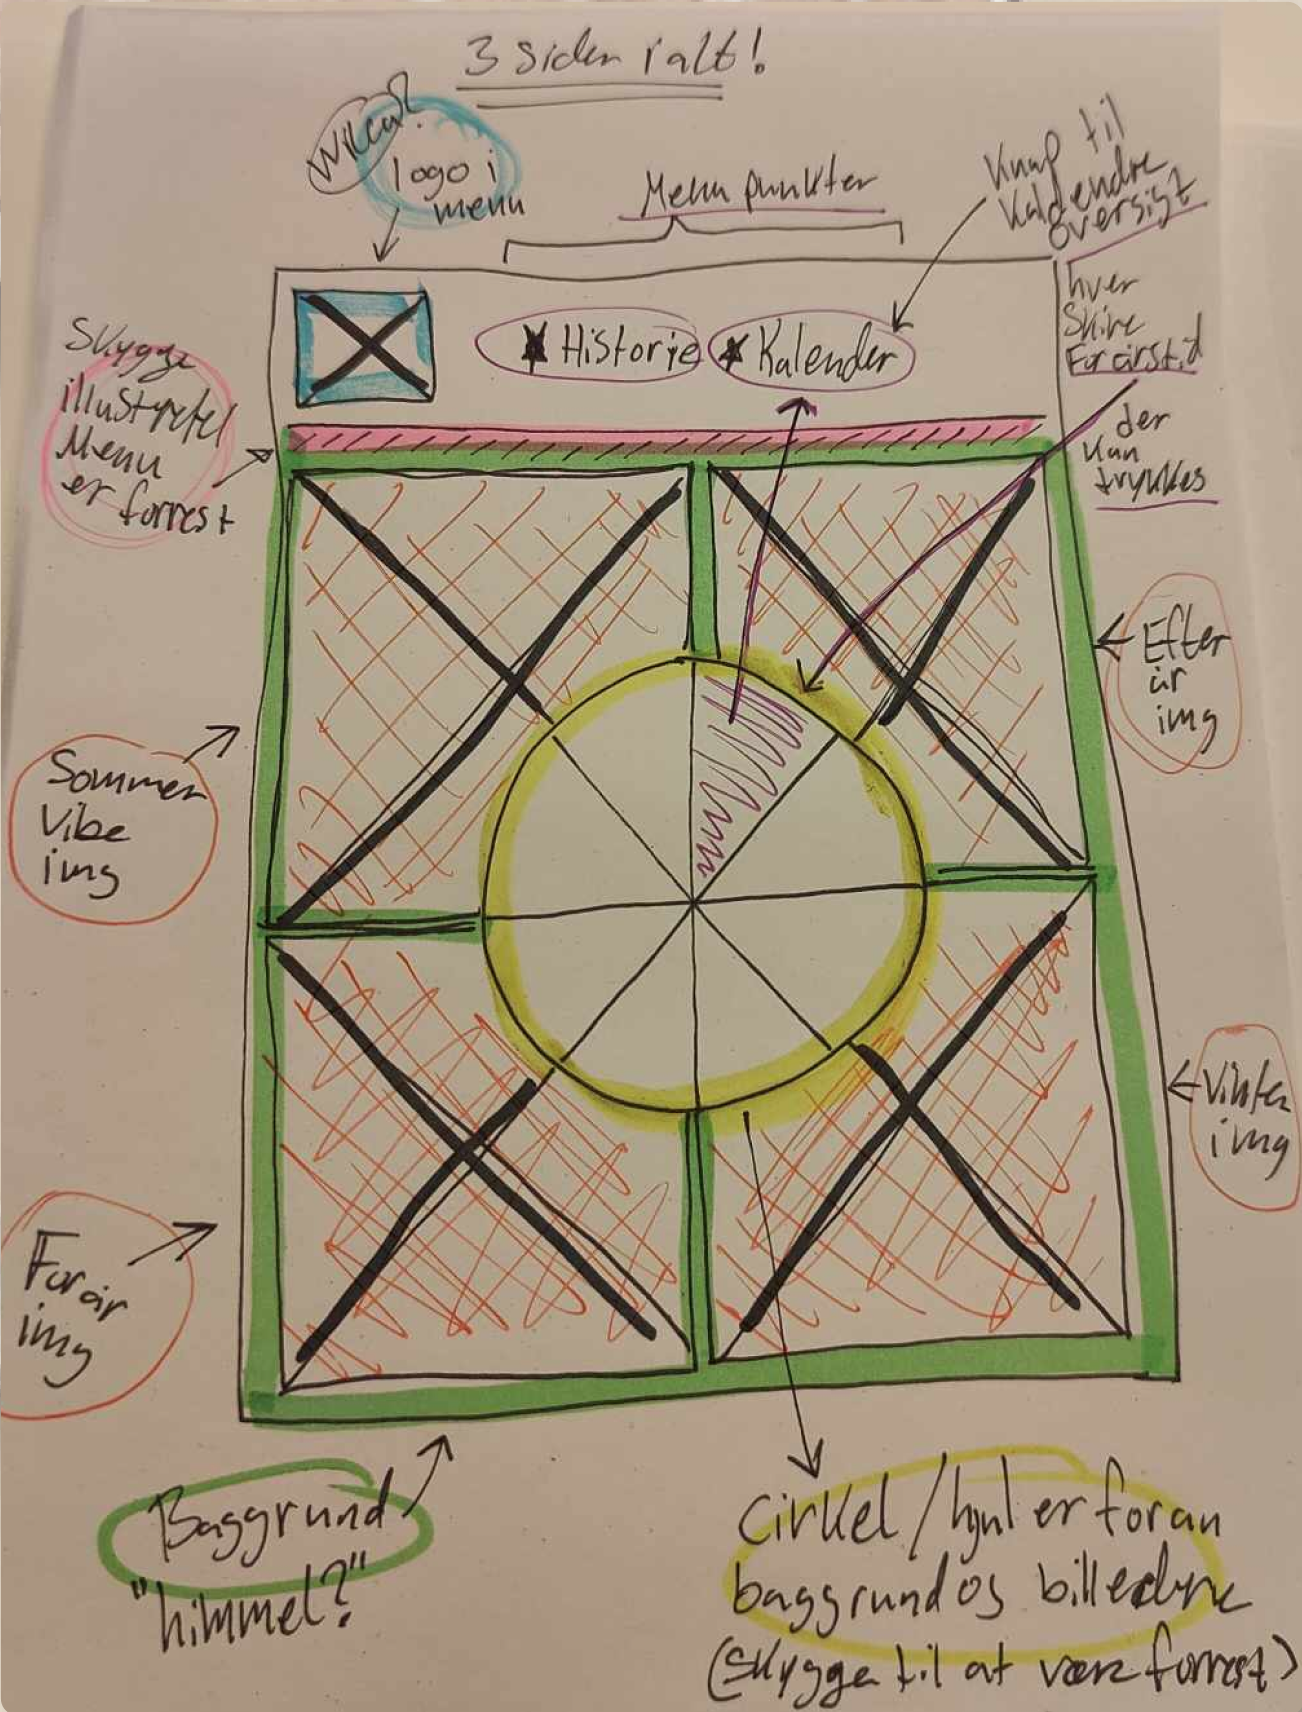 3 sider i alt!
Wicca?
logo i
menu
Menu punkter
Knap til
Kalendre
oversigt
hver
Skive
For årstid
der
kan
trykkes
Historie
Kalender
Skygge
illustrerer
Menu
er forrest
Efter
år
img
Sommer
Vibe
img
Vinter
img
Forår
img
Baggrund
"himmel?"
Cirkel/hjul er foran
baggrund og billederne
(Skygge til at være forrest)